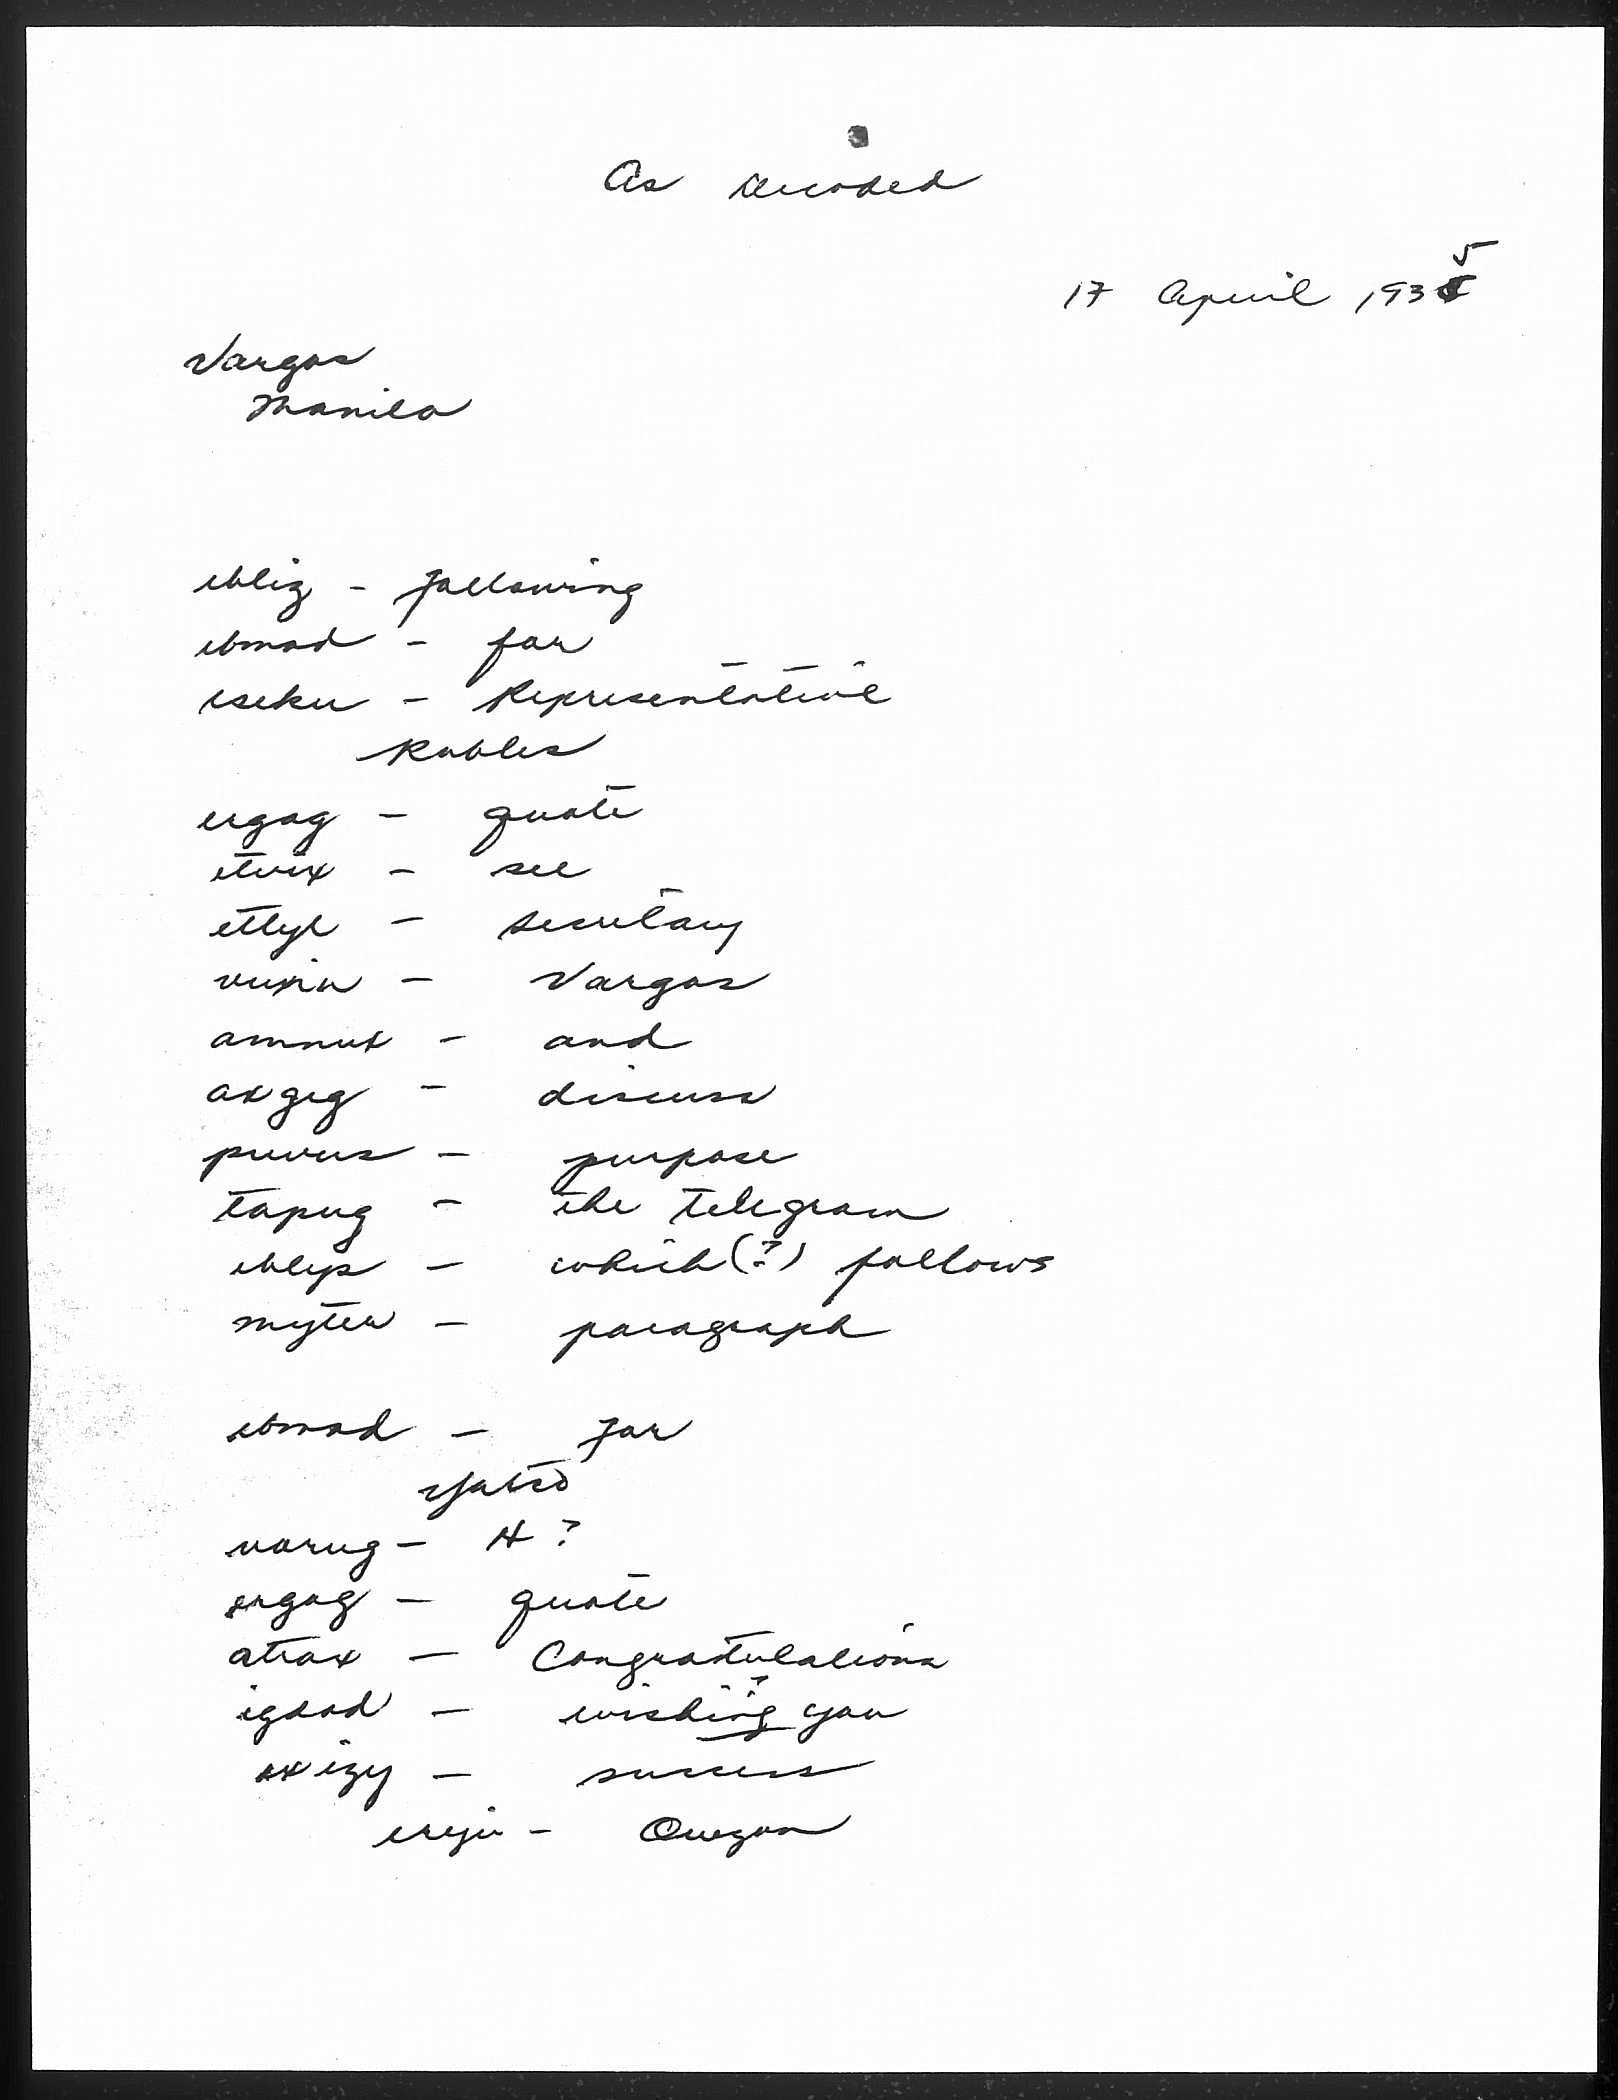 As decoded
17 April 1935
Vargas
Manila
ebliz - following
ebmad - for
eseku - Representative
Rables
ergag - quote
etvix - see
etlyl - secretary
Vargas
amnut - and
axgeg - discuss
puvus - purpose
tapug - the telegram
eblyp - which(?) follows
myten - paragraph
ebmad - for
varug - H ?
ergag - quote
atrax - Congratulations
igdod - wishing ? you
success
Quezon